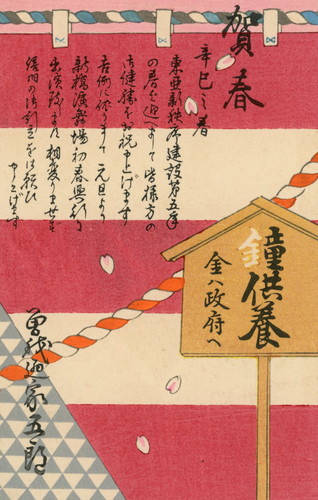 賀春
辛巳之春
東亜新秩序建設第五年
の春を迎へまして皆様方の
御健勝をお祝ひ申上げます
吉例に依りまして元旦より
新橋演舞場初春興行に
出演致します相変りませず
後期の御引立を御願ひ
申上げます
曽我廼家五郎
鐘供養
金ハ政府へ